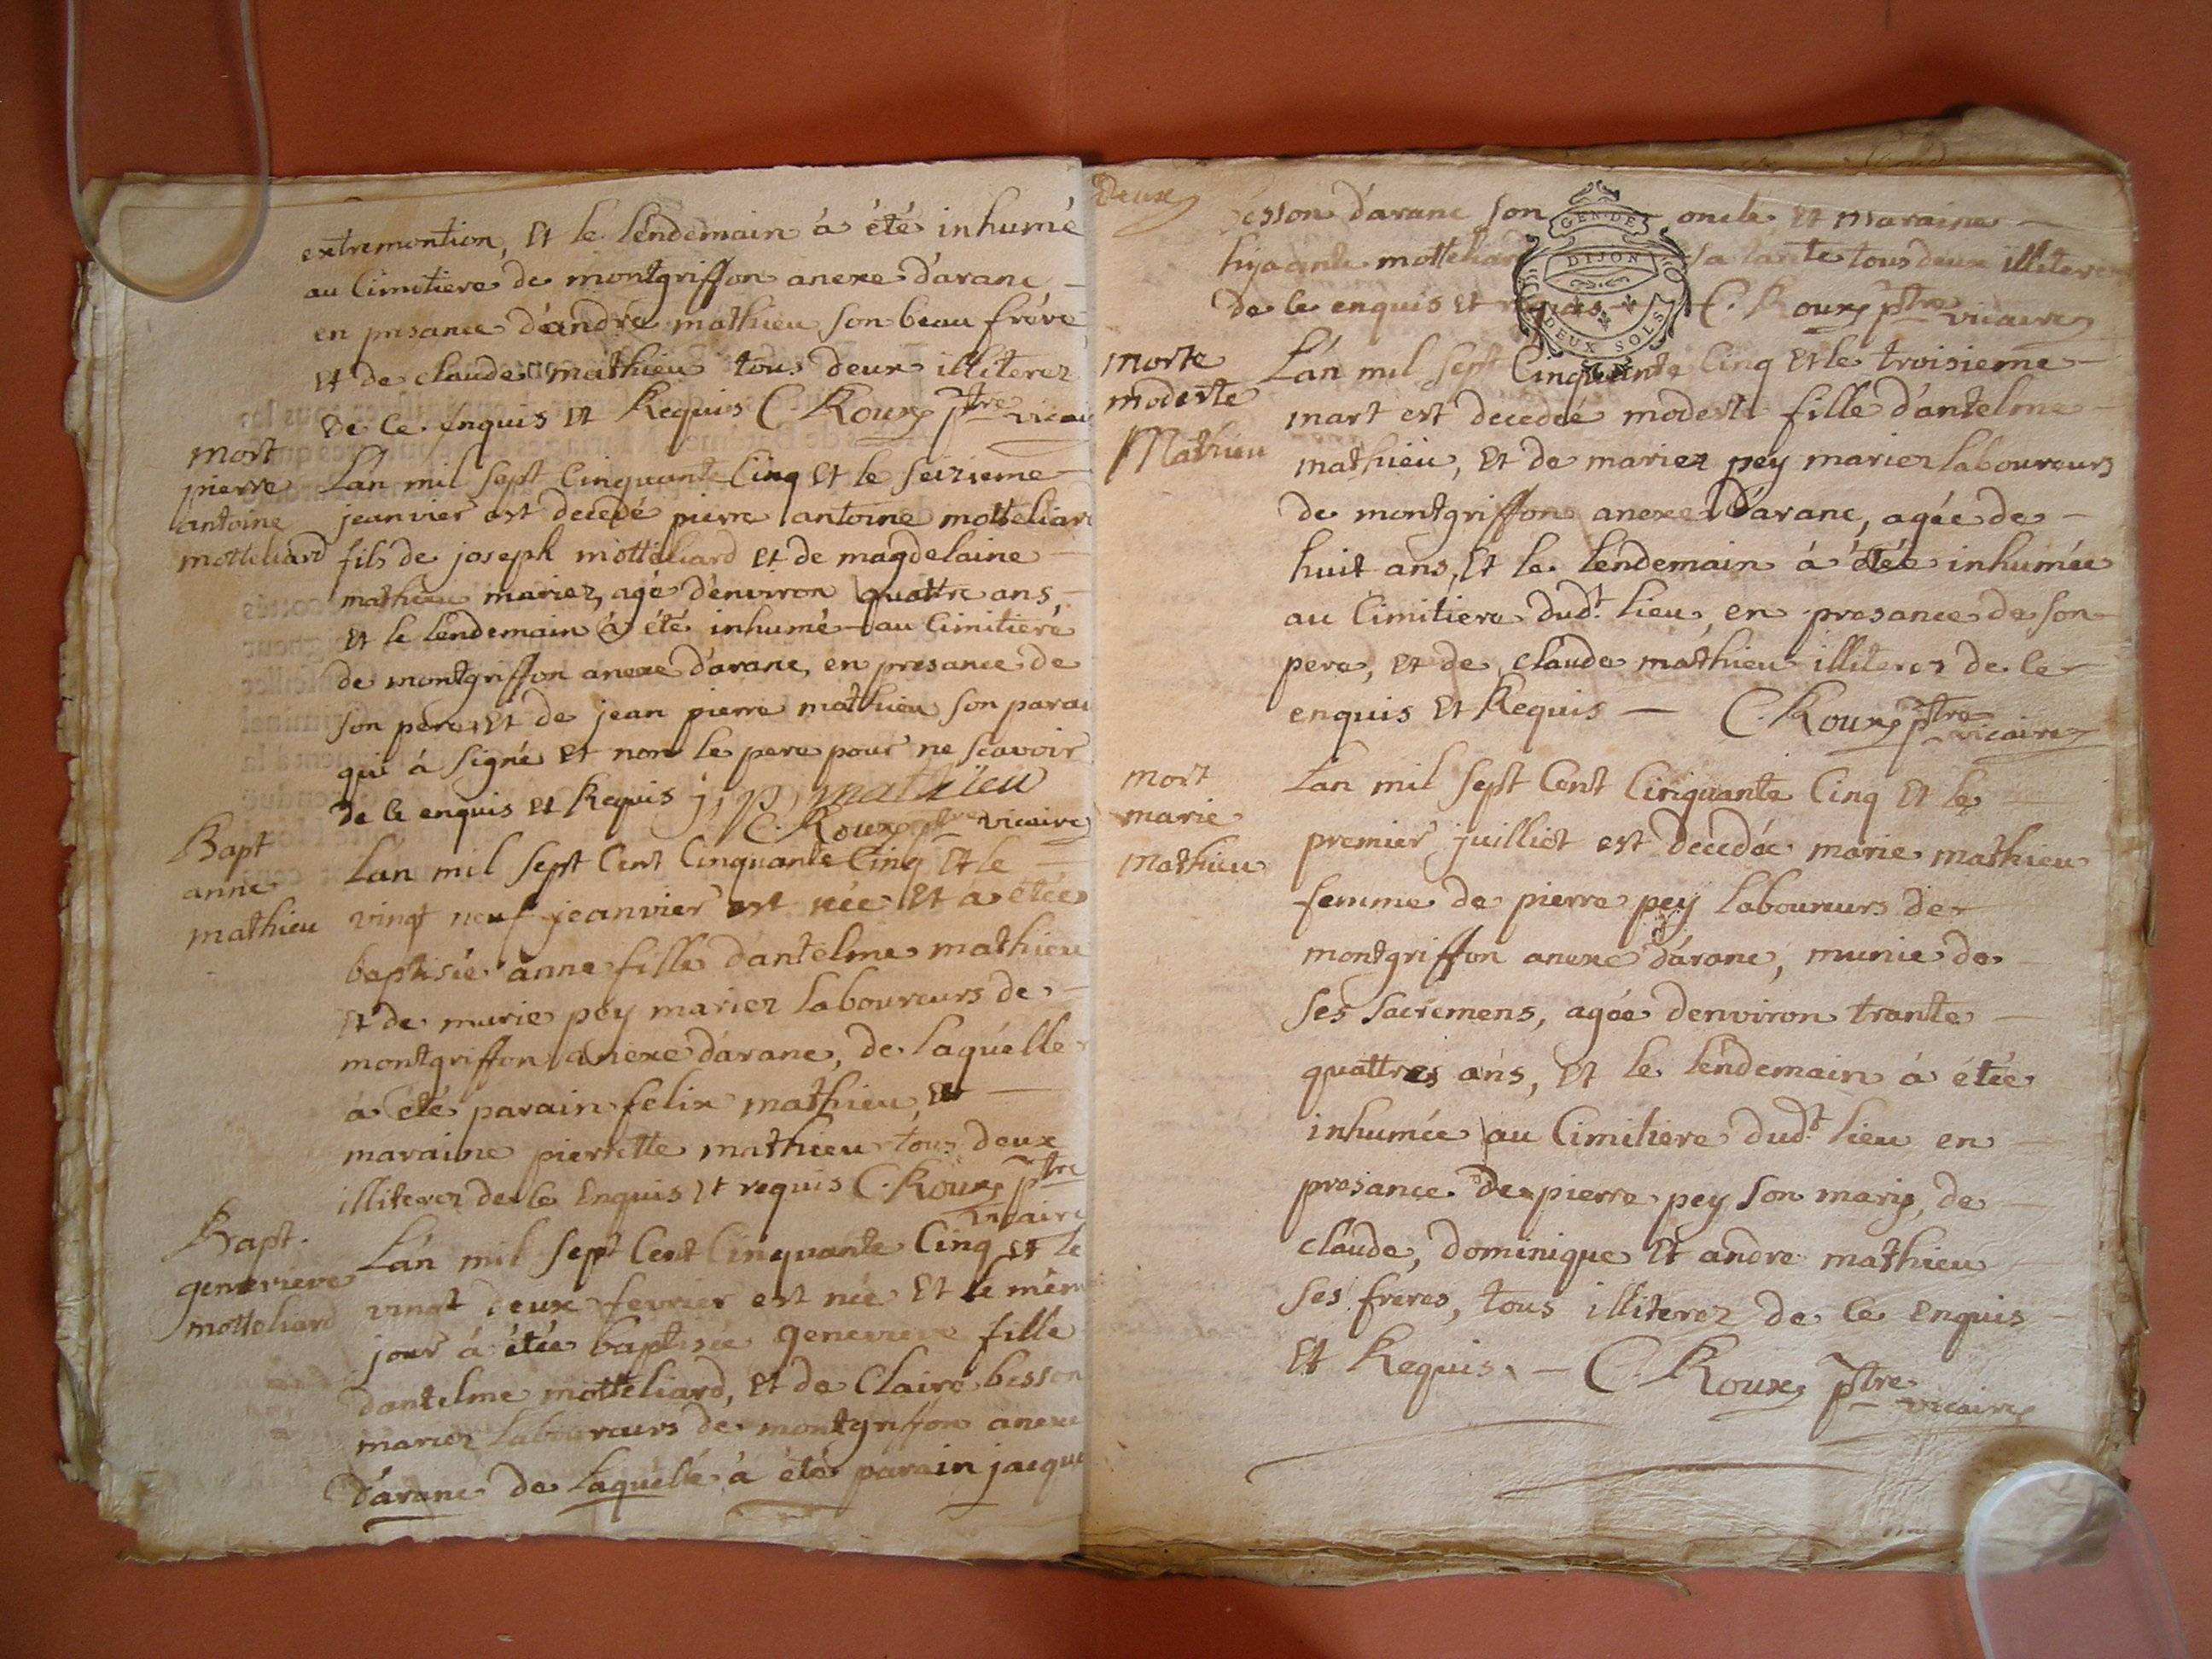 extremontion, Et le lendemain à été inhumé
au Cimitiere de montgriffon anexe d'aranc
en presance d'andré mathieu son beau frére
Et de claude mathieu tous deux illiterez
de ce enquis Et Requis C. Roux ptre vicai
mort
pierre
antoine
motteliard
L'an mil sept Cinquante Cinq Et le seizieme
jeanvier est decedé pierre antoine motteliar
fils de joseph motteliard Et de magdelaine
mathieu mariez, agé d'environ quattre ans,
Et le lendemain à été inhumé au Cimitiere
de montgriffon anexe d'aranc, en presance de
son pere, Et de jean pierre mathieu son parai
qui à signé Et non le pere pour ne scavoir
de ce enquis Et Requis j, p, mathieu
C. Roux ptre vicaire
Bapt
anne
mathieu
L'an mil sept Cent Cinquante Cinq Et le
vingt neuf jeanvier est née Et a etée
baptisée anne fille d'antelme mathieu
Et de marie pey mariez laboureurs de
montgriffon anexe d'aranc, de laquelle
à été parain felix mathieu, Et
maraine pierrette mathieu tous deux
illiterez de ce Enquis Et requis C. Roux ptre
vicaire
Bapt.
genevieve
motteliard
L'an mil sept Cent Cinquante Cinq Et le
vingt deux fevrier est née Et le mêm
jour à étée baptisée genevieve fille
d'antelme motteliard, Et de Claire besson
mariez laboureurs de montgriffon anexe
d'aranc de laquelle à été parain jacque
Deux
besson d'aranc son oncle Et maraine
hyacinte motteliard sa tante tous deux illiterez
de ce enquis Et requis C. Roux ptre vicaire
GEN DE
DIJON
DEUX SOLS
morte
modeste
Mathieu
L'an mil sept Cinquante Cinq Et le troisieme
mart est decedée modeste fille d'antelme
mathieu, Et de mariez pey mariez laboureurs
de montgriffon anexe d'aranc, agée de
huit ans, Et le lendemain à étée inhumée
au Cimitiere dudt. lieu, en presance de son
pere, Et de claude mathieu illiterez de ce
enquis Et Requis C. Roux ptre vicaire
mort
marie
mathieu
L'an mil sept Cent Cinquante Cinq Et le
premier juilliet est decedée marie mathieu
femme de pierre pey laboureurs de
montgriffon anexe d'aranc, munie de
ses sacremens, agée denviron trante
quattres ans, Et le lendemain à étée
inhumée au Cimitiere dudt. lieu en
presance de pierre pey son mary, de
claude, dominique Et andre mathieu
ses freres, tous illiterez de ce enquis
Et Requis. C. Roux ptre
vicaire